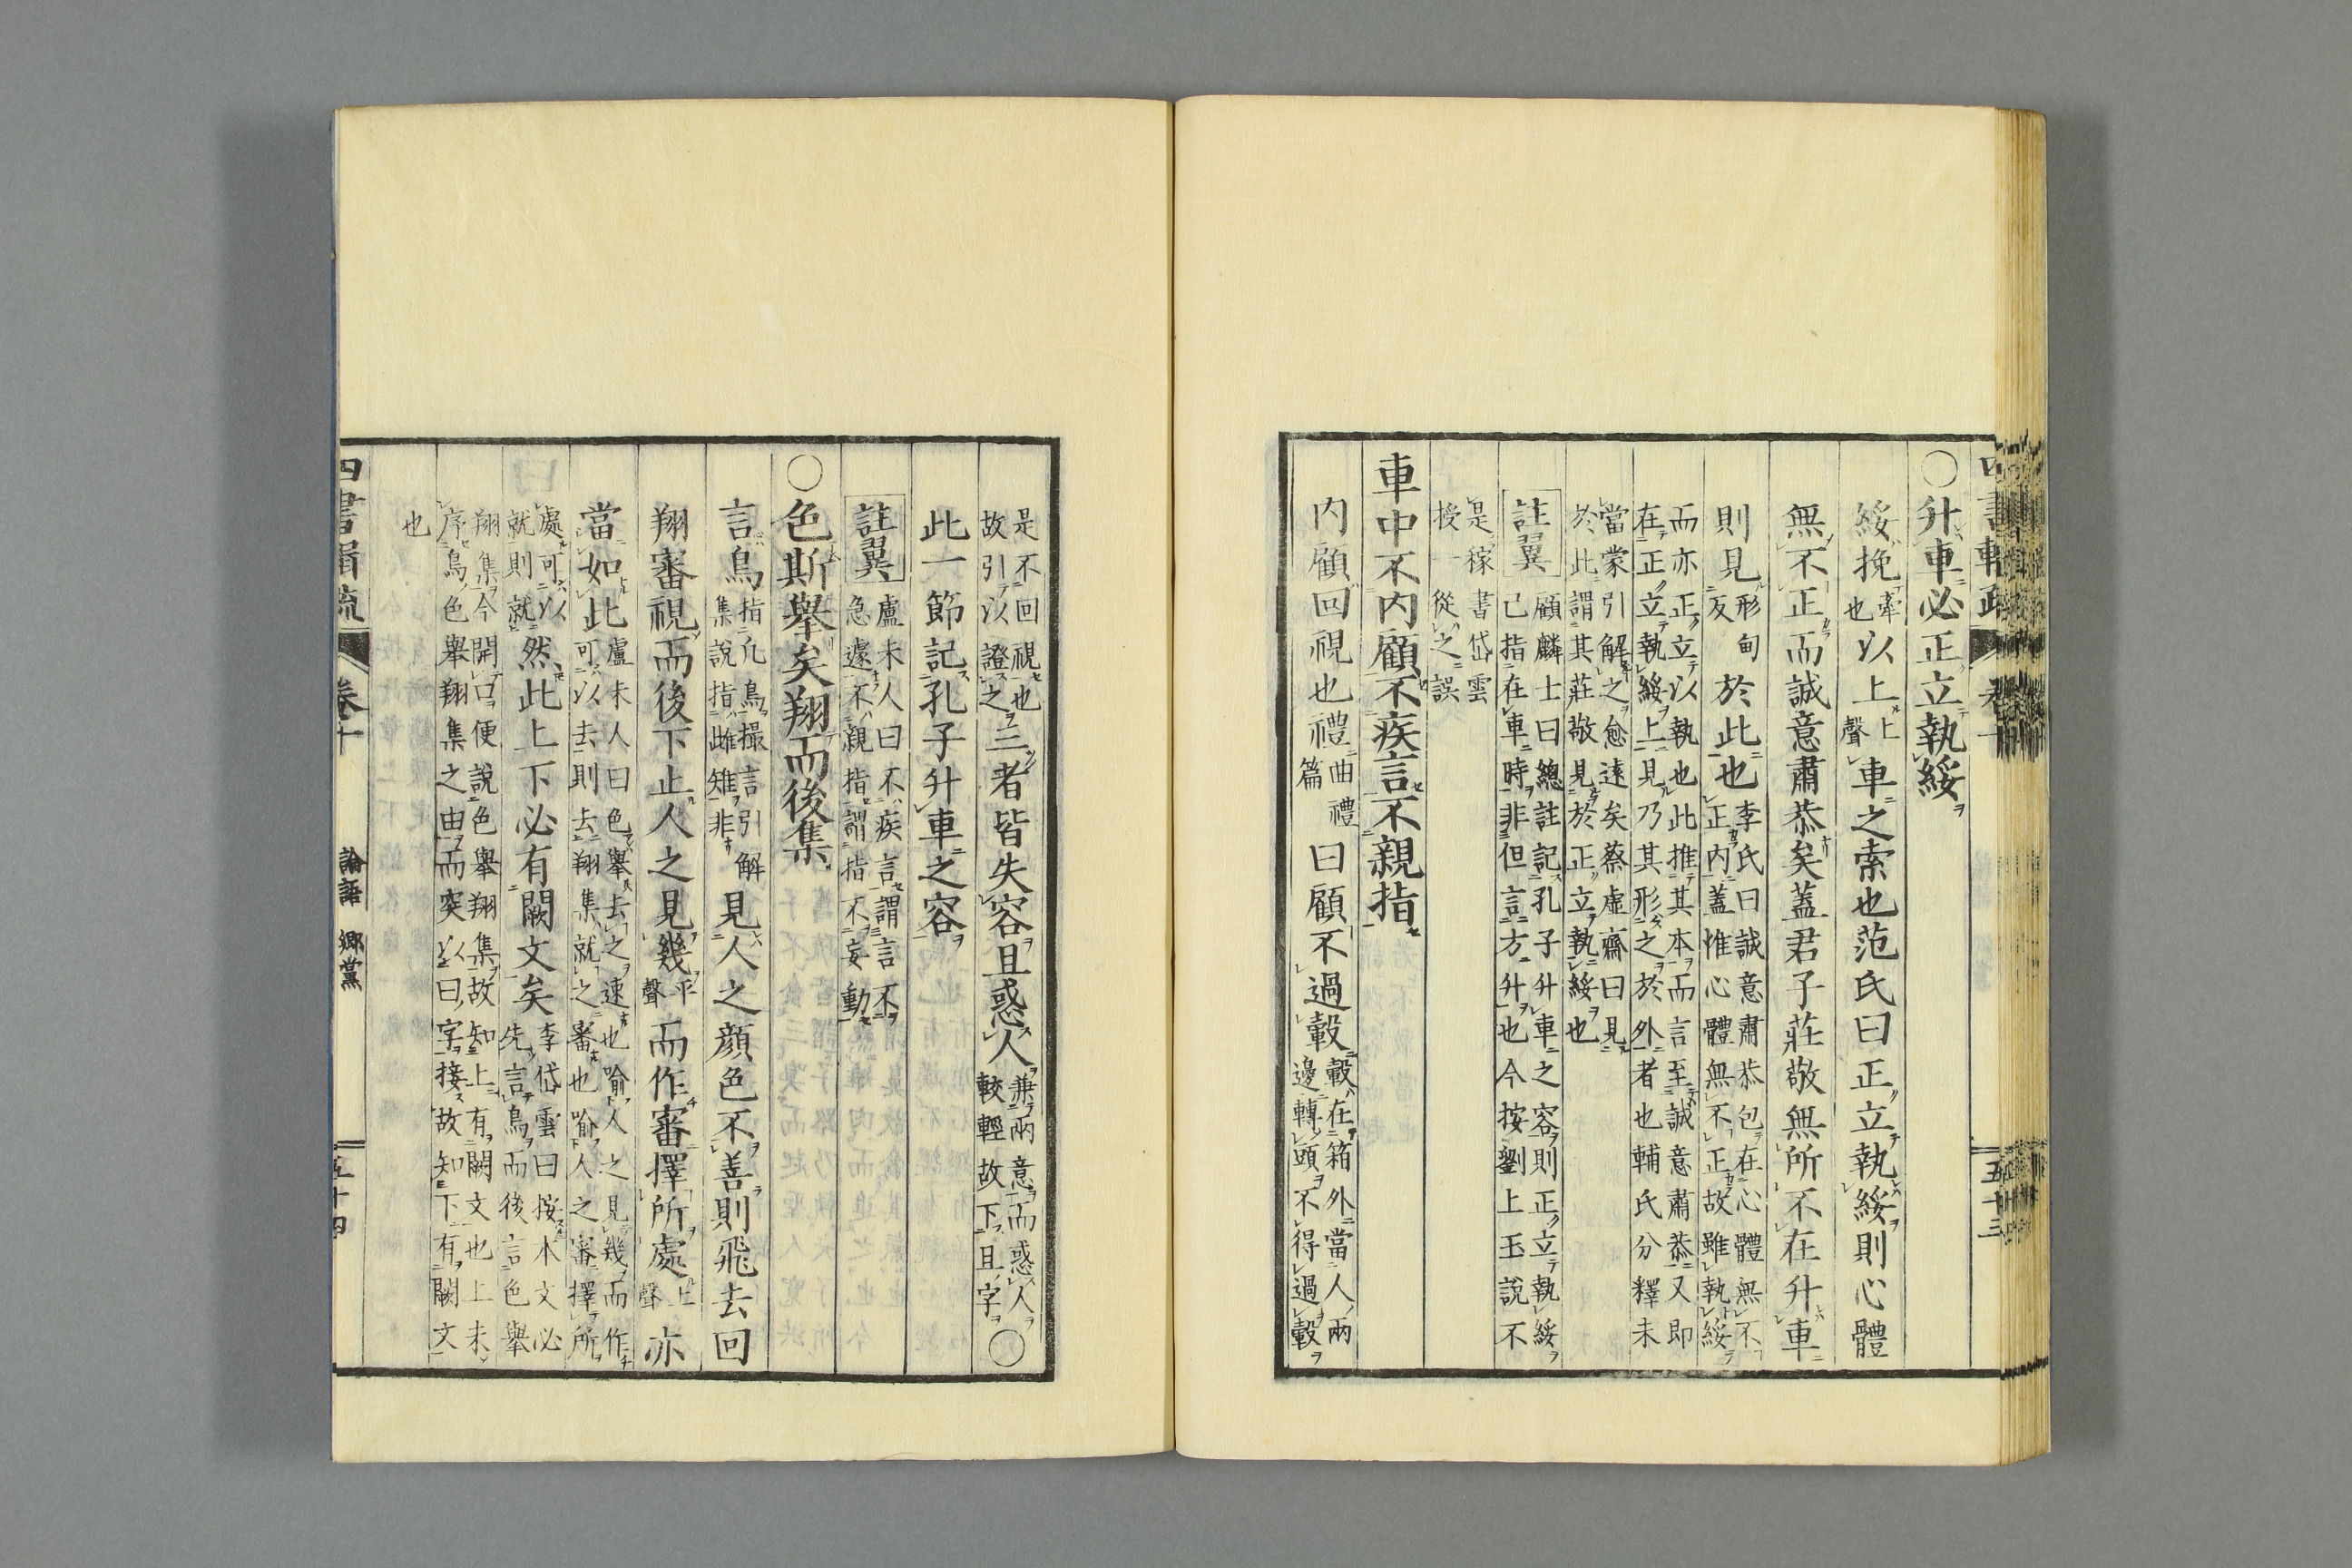 ○升車必正立執綏
綏挽
牽
也
以上
上
聲
車之索也范氏曰正立執綏則心體
無不正而誠意肅恭矣蓋君子莊敬無所不在升車
則見
形甸
反
於此也
李氏曰誠意肅恭包在心體無不
正內蓋惟心體無不正故雖執綏
而亦正立以執也此推其本而言至誠意肅恭又即
在正立執綏上見乃其形之於外者也輔氏分釋未
當蒙引解之愈遠矣蔡虛齋曰見
於此謂其莊敬見於正立執綏也
註翼
顧麟士曰總註記孔子升車之容則正立執綏
已指在車時非但言方升也今按劉上玉說不
是稼書岱雲
授一從之誤
車中不內顧不疾言不親指
內顧回視也禮
曲禮
篇
曰顧不過轂
轂在箱外當人兩
邊轉頭不得過轂
是不回視也
故引以證之
三者皆失容且惑人
兼兩意而惑人
較輕故下且字
○
此一節記孔子升車之容
註翼
盧未人曰不疾言謂言不
急遽不親指謂指不妄動
○色斯舉矣翔而後集
言鳥
指凡鳥撮言引解
集說指指雌雉非
見人之顏色不善則飛去回
翔審視而後下止人之見幾
平
聲
而作審擇所處
上
聲
亦
當如此
盧未人曰色舉去之速也喻人之見幾而作
可以去則去翔集就之審也喻人之審擇所
處可以
就則就
然此上下必有闕文矣
李岱雲曰按本文必
先言鳥而後言色舉
翔集今開口便說色舉翔集故知上有闕文也上未
序鳥色舉翔集之由而突以曰字接故知下有闕文
也
卷十
論語
鄉黨
五十四
五十三